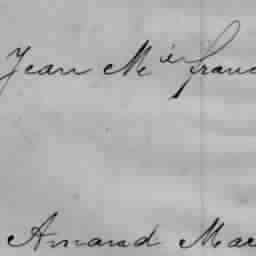 Jean Mie franc
Amand Mar